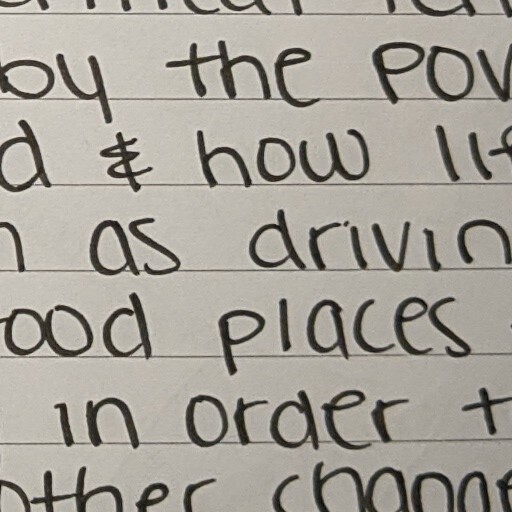 by the pov
d & how lif
n as drivin
ood places
in order t
other change